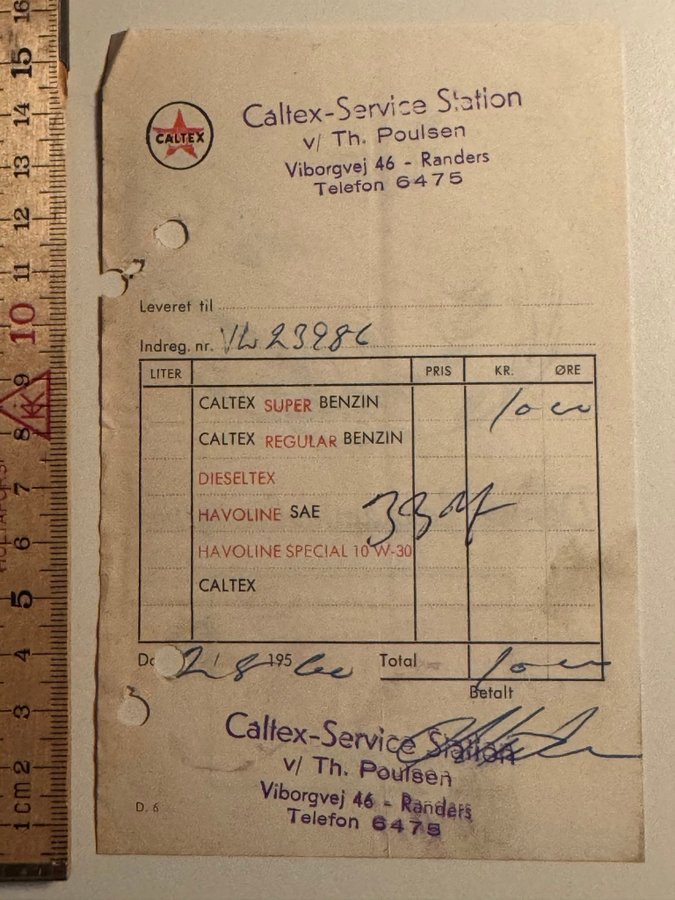 CALTEX
Caltex-Service Station
v/ Th. Poulsen
Viborgvej 46 - Randers
Telefon 6475
Leveret til
Indreg. nr.
LITER PRIS KR. ØRE
CALTEX SUPER BENZIN 10 00
CALTEX REGULAR BENZIN
DIESELTEX
HAVOLINE SAE
HAVOLINE SPECIAL 10 W-30
CALTEX
2/8 195 Total 10
Betalt
Caltex-Service Station
v/ Th. Poulsen
Viborgvej 46 - Randers
Telefon 6475
D. 6
16
15
14
13
12
11
10
9
8
7
6
5
4
3
2
1cm